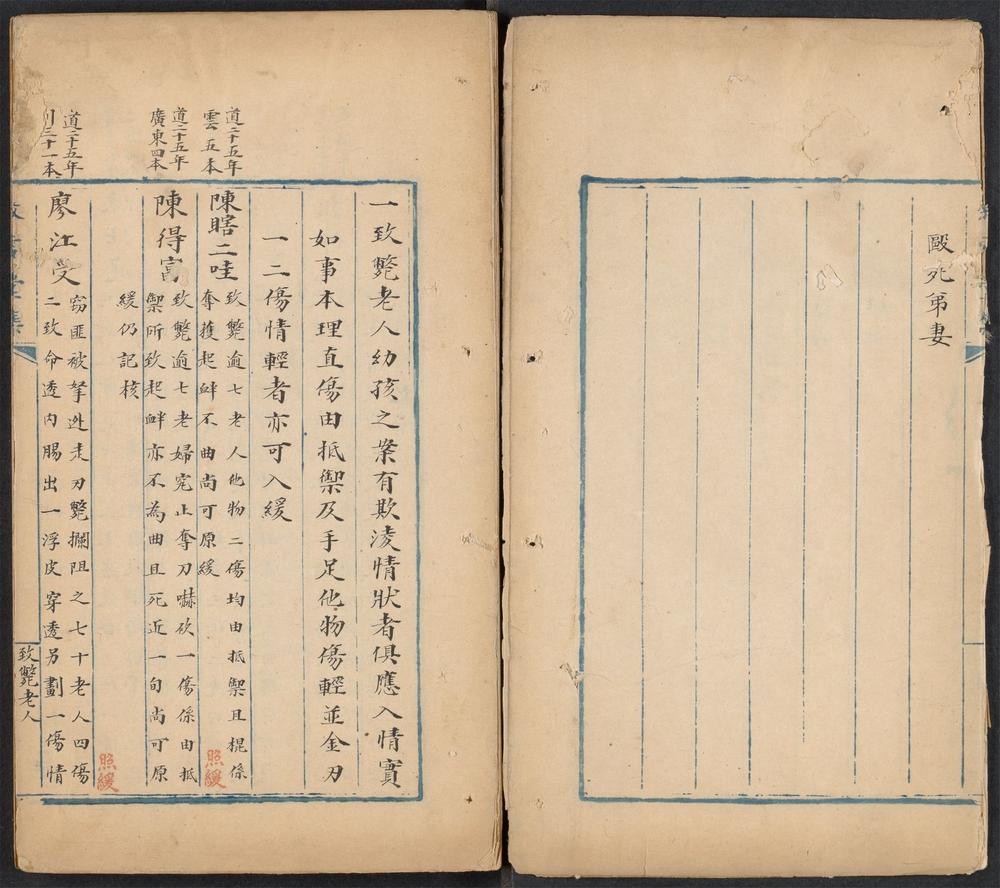 毆死弟妻
一致斃老人幼孩之案有欺凌情狀者俱應入情實
如事本理直傷由抵禦及手足他物傷輕並金刃
一二傷情輕者亦可入緩
道二十五年
雲五本
陳瞎二哇
致斃逾七老人他物二傷均由抵禦且棍係
奪獲起衅不曲尚可原緩
照緩
道二十五年
廣東四本
陳得富
致斃逾七老婦究止奪刀嚇砍一傷係由抵
禦所致起衅亦不為曲且死近一旬尚可原
緩仍記核
照緩
道二十五年
川三十一本
廖江受
窃匪被拏逃走刃斃攔阻之七十老人四傷
二致命透內腸出一浮皮穿透另劃一傷情
致斃老人